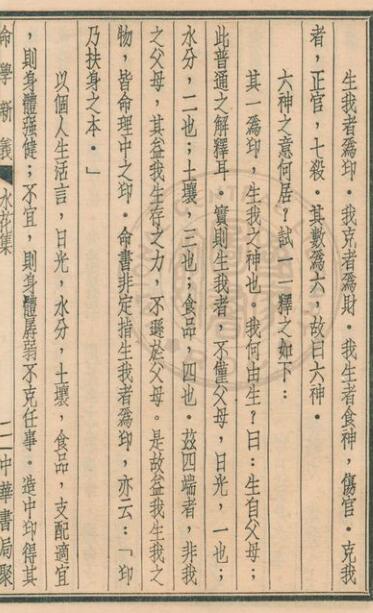 生我者爲印．我克者爲財．我生者食神，傷官．克我
者，正官，七殺．其數爲六，故曰六神．
六神之意何居？試一一釋之如下：
其一爲印，生我之神也．我何由生？曰：生自父母；
此普通之解釋耳．實則生我者，不僅父母，日光，一也；
水分，二也；土壤，三也；食品，四也．茲四端者，非我
之父母，其益我生存之力，不遜於父母。是故益我生我之
物，皆命理中之印．命書非定指生我者爲印，亦云：「印
乃扶身之本．」
以個人生活言，日光，水分，土壤，食品，支配適宜
，則身體強健；不宜，則身體孱弱不克任事．造中印得其
命學新義 水花集 二一中華書局聚